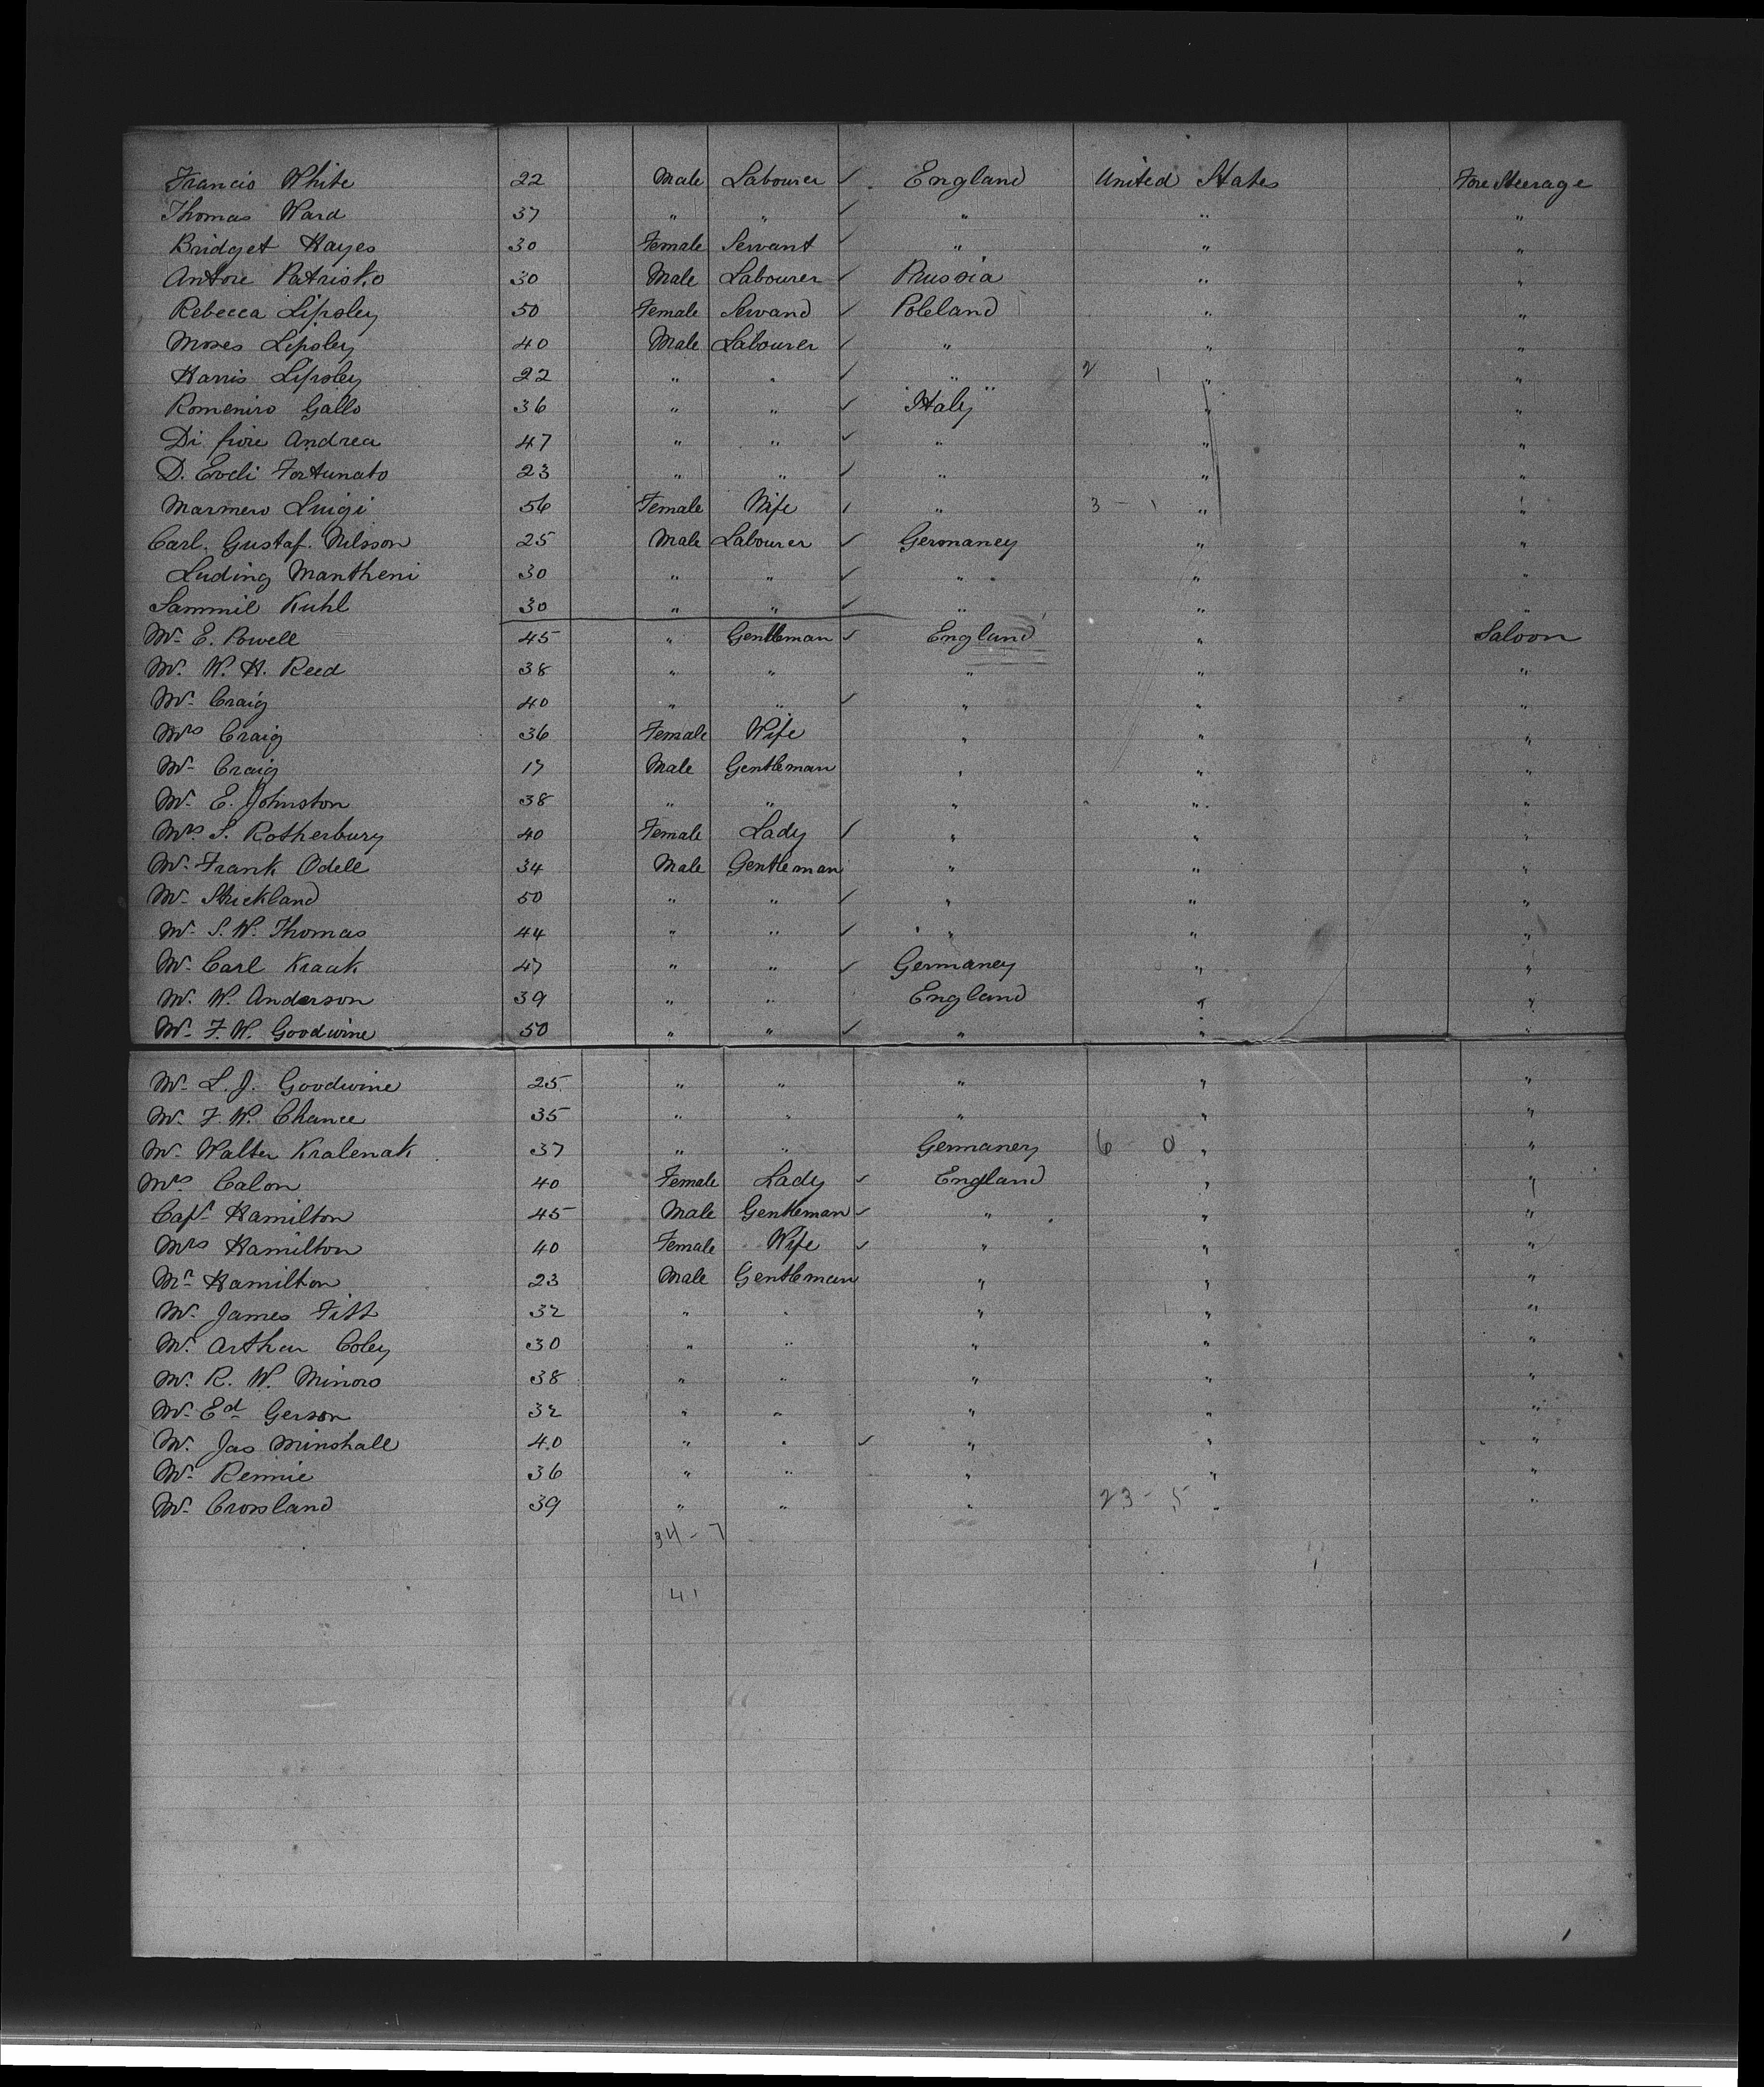 Francis White 22 Male Labourer ✓ England United States Fore Steerage
Thomas Ward 37 " " ✓ " " "
Bridget Hayes 30 Female Servant ✓ " " "
Antore Patrisko 30 Male Labourer ✓ Russia " "
Rebecca Lipsley 50 Female Servand ✓ Poleland " "
Moses Lipsley 40 Male Labourer ✓ " " "
Harris Lipsley 22 " " ✓ " 2 1 " "
Romeniro Gallo 36 " " ✓ Italy " "
Di fiore Andrea 47 " " ✓ " " "
D. Evoli Fortunato 23 " " ✓ " " "
Marmero Luigi 56 Female Wife ✓ " 3 - 1 " "
Carl. Gustaf. Nilsson 25 Male Labourer ✓ Germaney " "
Luding Mantheni 30 " " ✓ " " "
Sammil Kuhl 30 " " ✓ " " "
Mr. E. Powell 45 " Gentleman ✓ England " Saloon
Mr. W. H. Reed 38 " " " " "
Mr. Craig 40 " " ✓ " " "
Mrs Craig 36 Female Wife " " "
Mr. Craig 17 Male Gentleman " " "
Mr. E. Johnston 38 " " " " "
Mrs S. Rotherbury 40 Female Lady ✓ " " "
Mr. Frank Odell 34 Male Gentleman " " "
Mr. Strickland 50 " " ✓ " " "
Mr. S. W. Thomas 44 " " ✓ " " "
Mr. Carl Kraak 47 " " ✓ Germaney " "
Mr. W. Anderson 39 " " England " "
Mr. F. W. Goodwine 50 " " ✓ " " "
Mr. L. J. Goodwine 25 " " " " "
Mr. F. W. Chance 35 " " " " "
Mr. Walter Kralenak 37 " " Germaney 6 0 " "
Mrs Calon 40 Female Lady ✓ England " "
Capt. Hamilton 45 Male Gentleman ✓ " " "
Mrs Hamilton 40 Female Wife ✓ " " "
Mr Hamilton 23 Male Gentleman " " "
Mr. James Fitt 32 " " " " "
Mr. Arthur Coley 30 " " " " "
Mr. R. W. Minors 38 " " " " "
Mr. Ed Gerson 32 " " " " "
Mr. Jas Minshall 40 " " ✓ " " "
Mr. Rennie 36 " " " " "
Mr. Crossland 39 " " " 23 - 5 " "
34 - 7
41